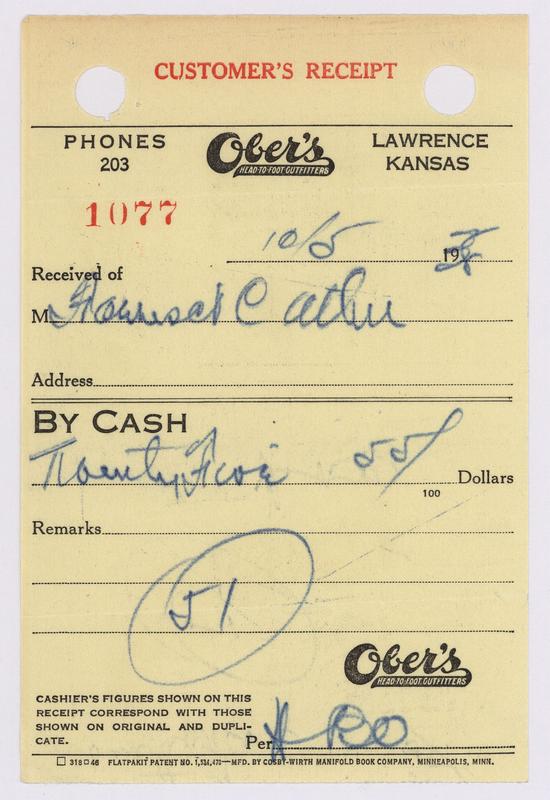 CUSTOMER'S RECEIPT
PHONES
203
Ober's
HEAD-TO-FOOT OUTFITTERS
LAWRENCE
KANSAS
1077
10/5 19
Received of
M
Address
BY CASH
Twenty Five 55/100 Dollars
Remarks
51
Ober's
HEAD-TO-FOOT OUTFITTERS
CASHIER'S FIGURES SHOWN ON THIS
RECEIPT CORRESPOND WITH THOSE
SHOWN ON ORIGINAL AND DUPLI-
CATE.
Per
318 46 FLATPAKIT PATENT NO. 1,534,470—MFD. BY COSBY-WIRTH MANIFOLD BOOK COMPANY, MINNEAPOLIS, MINN.